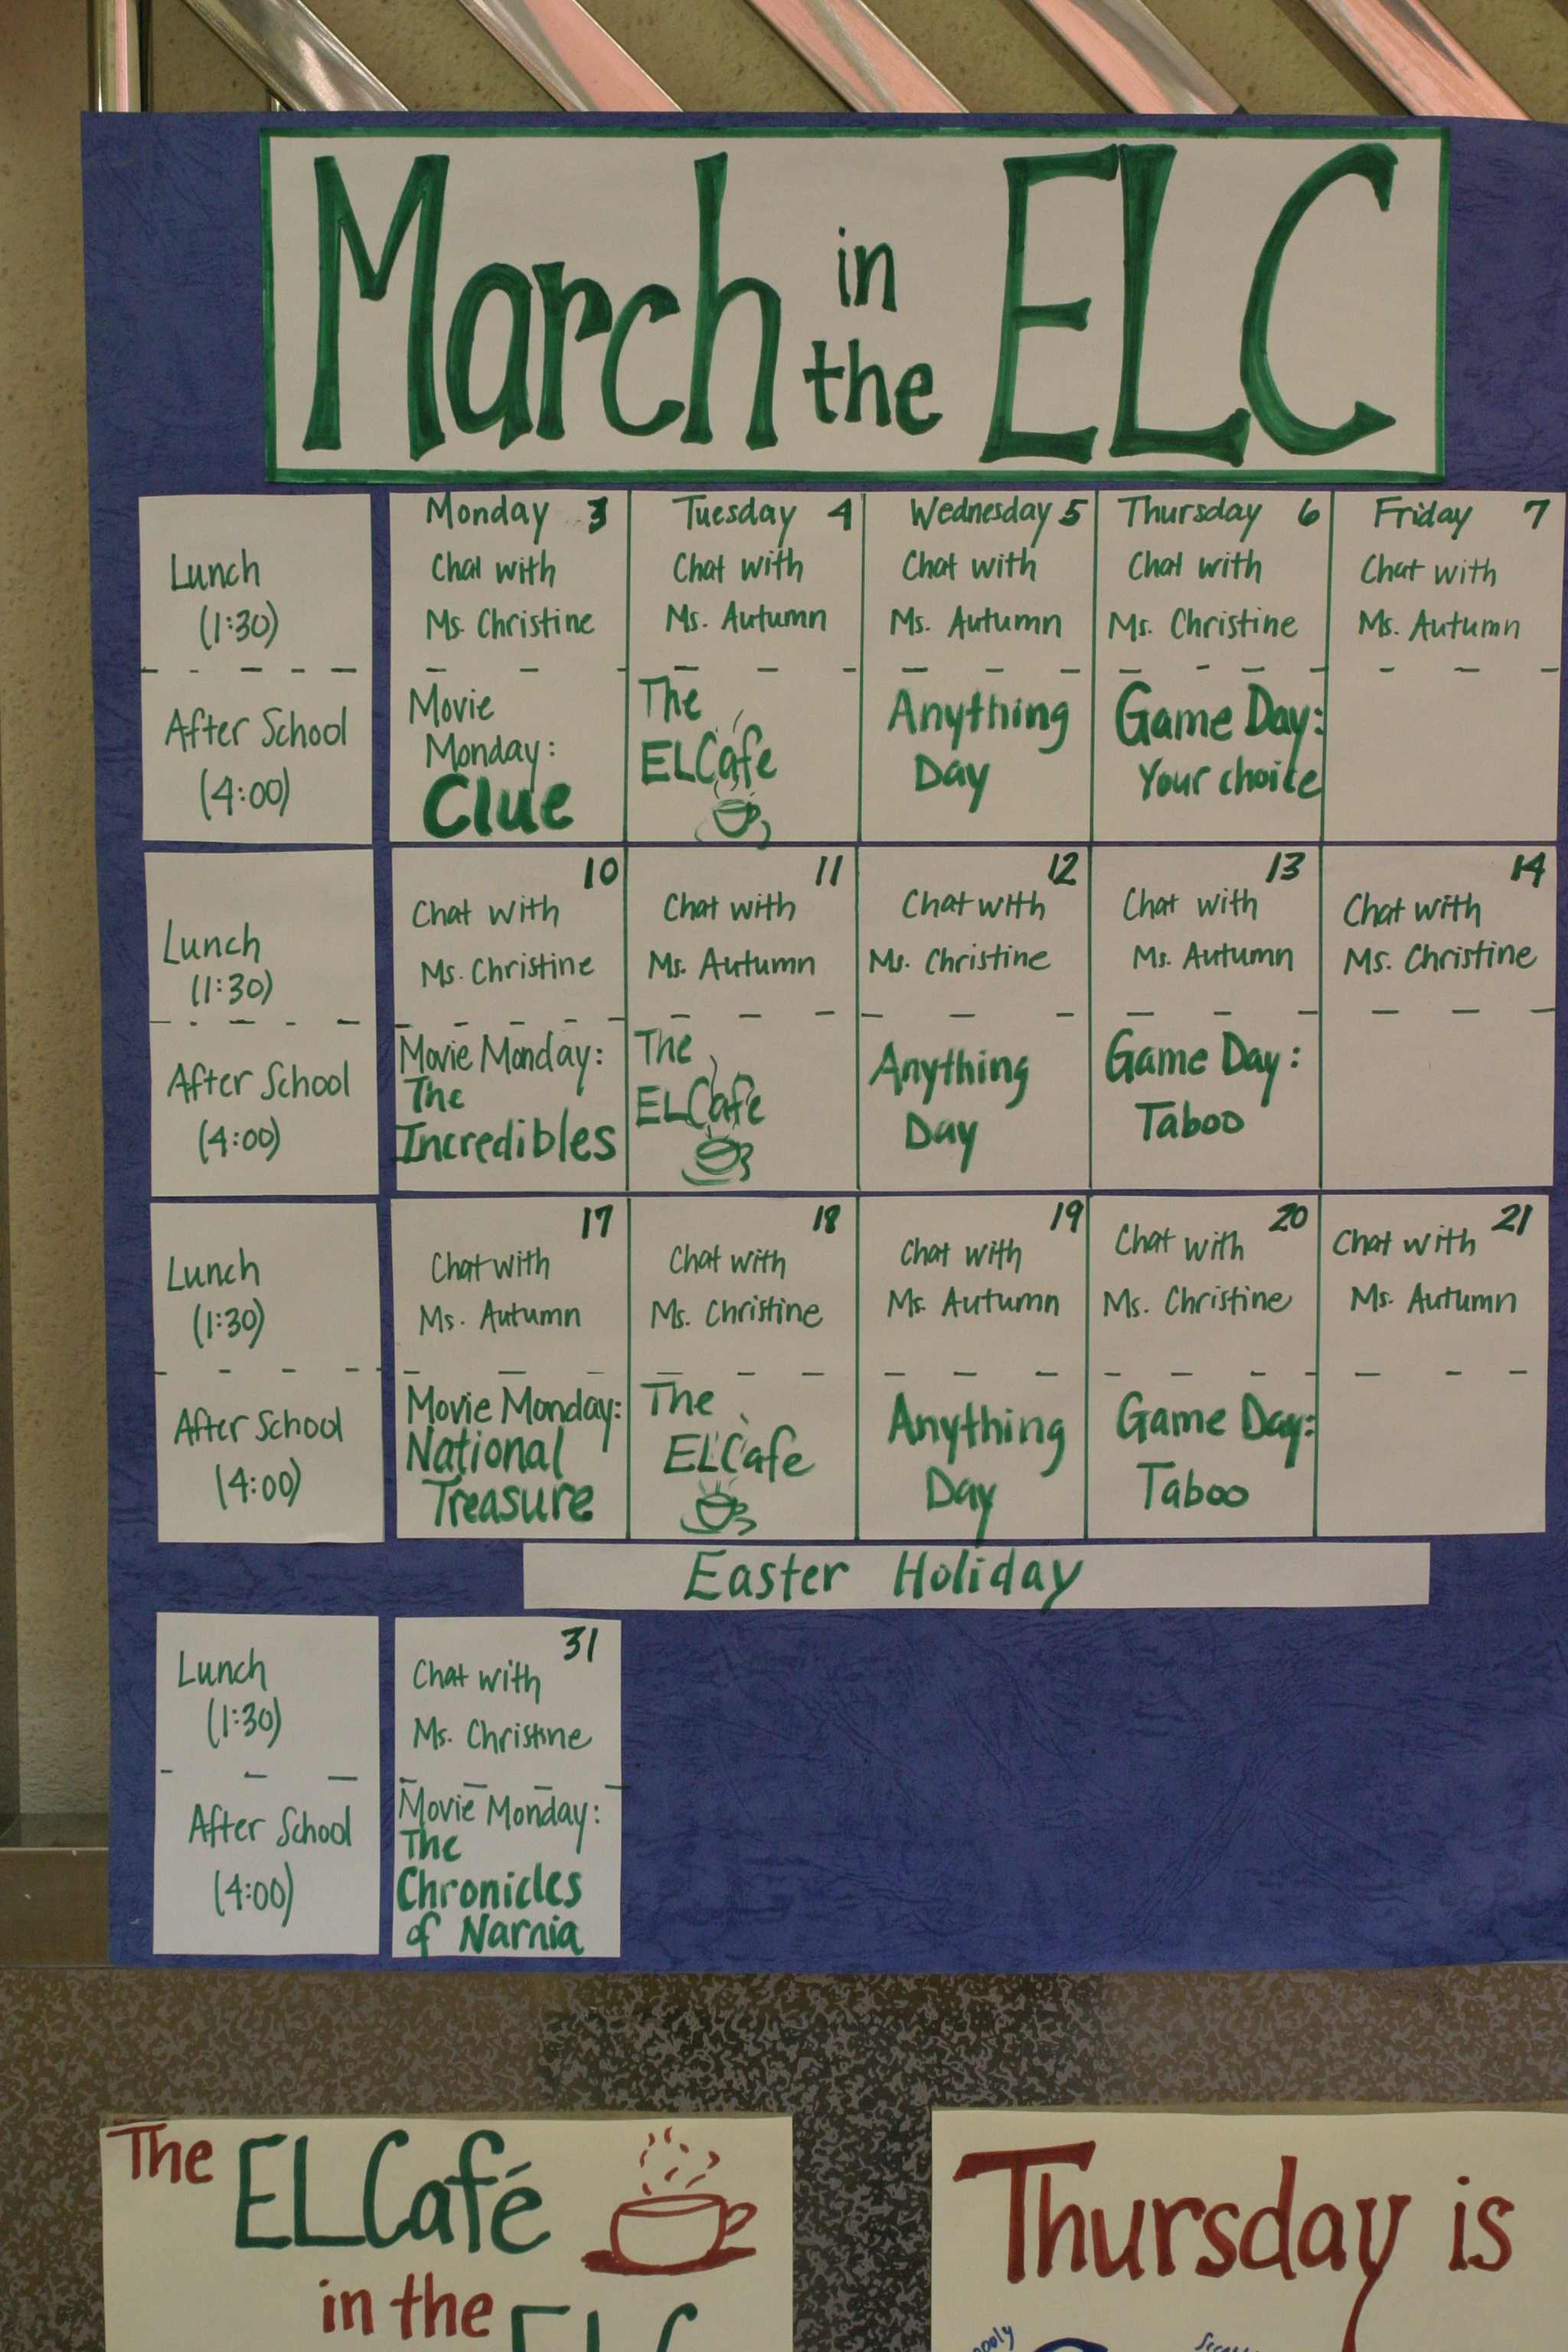 March in the ELC
Lunch
(1:30)
After School
(4:00)
Monday 3
Chat with
Ms. Christine
Movie
Monday:
Clue
Tuesday 4
Chat with
Ms. Autumn
The
ELCafe
Wednesday 5
Chat with
Ms. Autumn
Anything
Day
Thursday 6
Chat with
Ms. Christine
Game Day:
Your choice
Friday 7
Chat with
Ms. Autumn
Lunch
(1:30)
After School
(4:00)
10
Chat with
Ms. Christine
Movie Monday:
The
Incredibles
11
Chat with
Ms. Autumn
The
ELCafe
12
Chat with
Ms. Christine
Anything
Day
13
Chat with
Ms. Autumn
Game Day:
Taboo
14
Chat with
Ms. Christine
Lunch
(1:30)
After School
(4:00)
17
Chat with
Ms. Autumn
Movie Monday:
National
Treasure
18
Chat with
Ms. Christine
The
ELCafe
19
Chat with
Ms. Autumn
Anything
Day
20
Chat with
Ms. Christine
Game Day:
Taboo
21
Chat with
Ms. Autumn
Easter Holiday
Lunch
(1:30)
After School
(4:00)
31
Chat with
Ms. Christine
Movie Monday:
The
Chronicles
of Narnia
The ELCafé
in the ELC
Thursday is